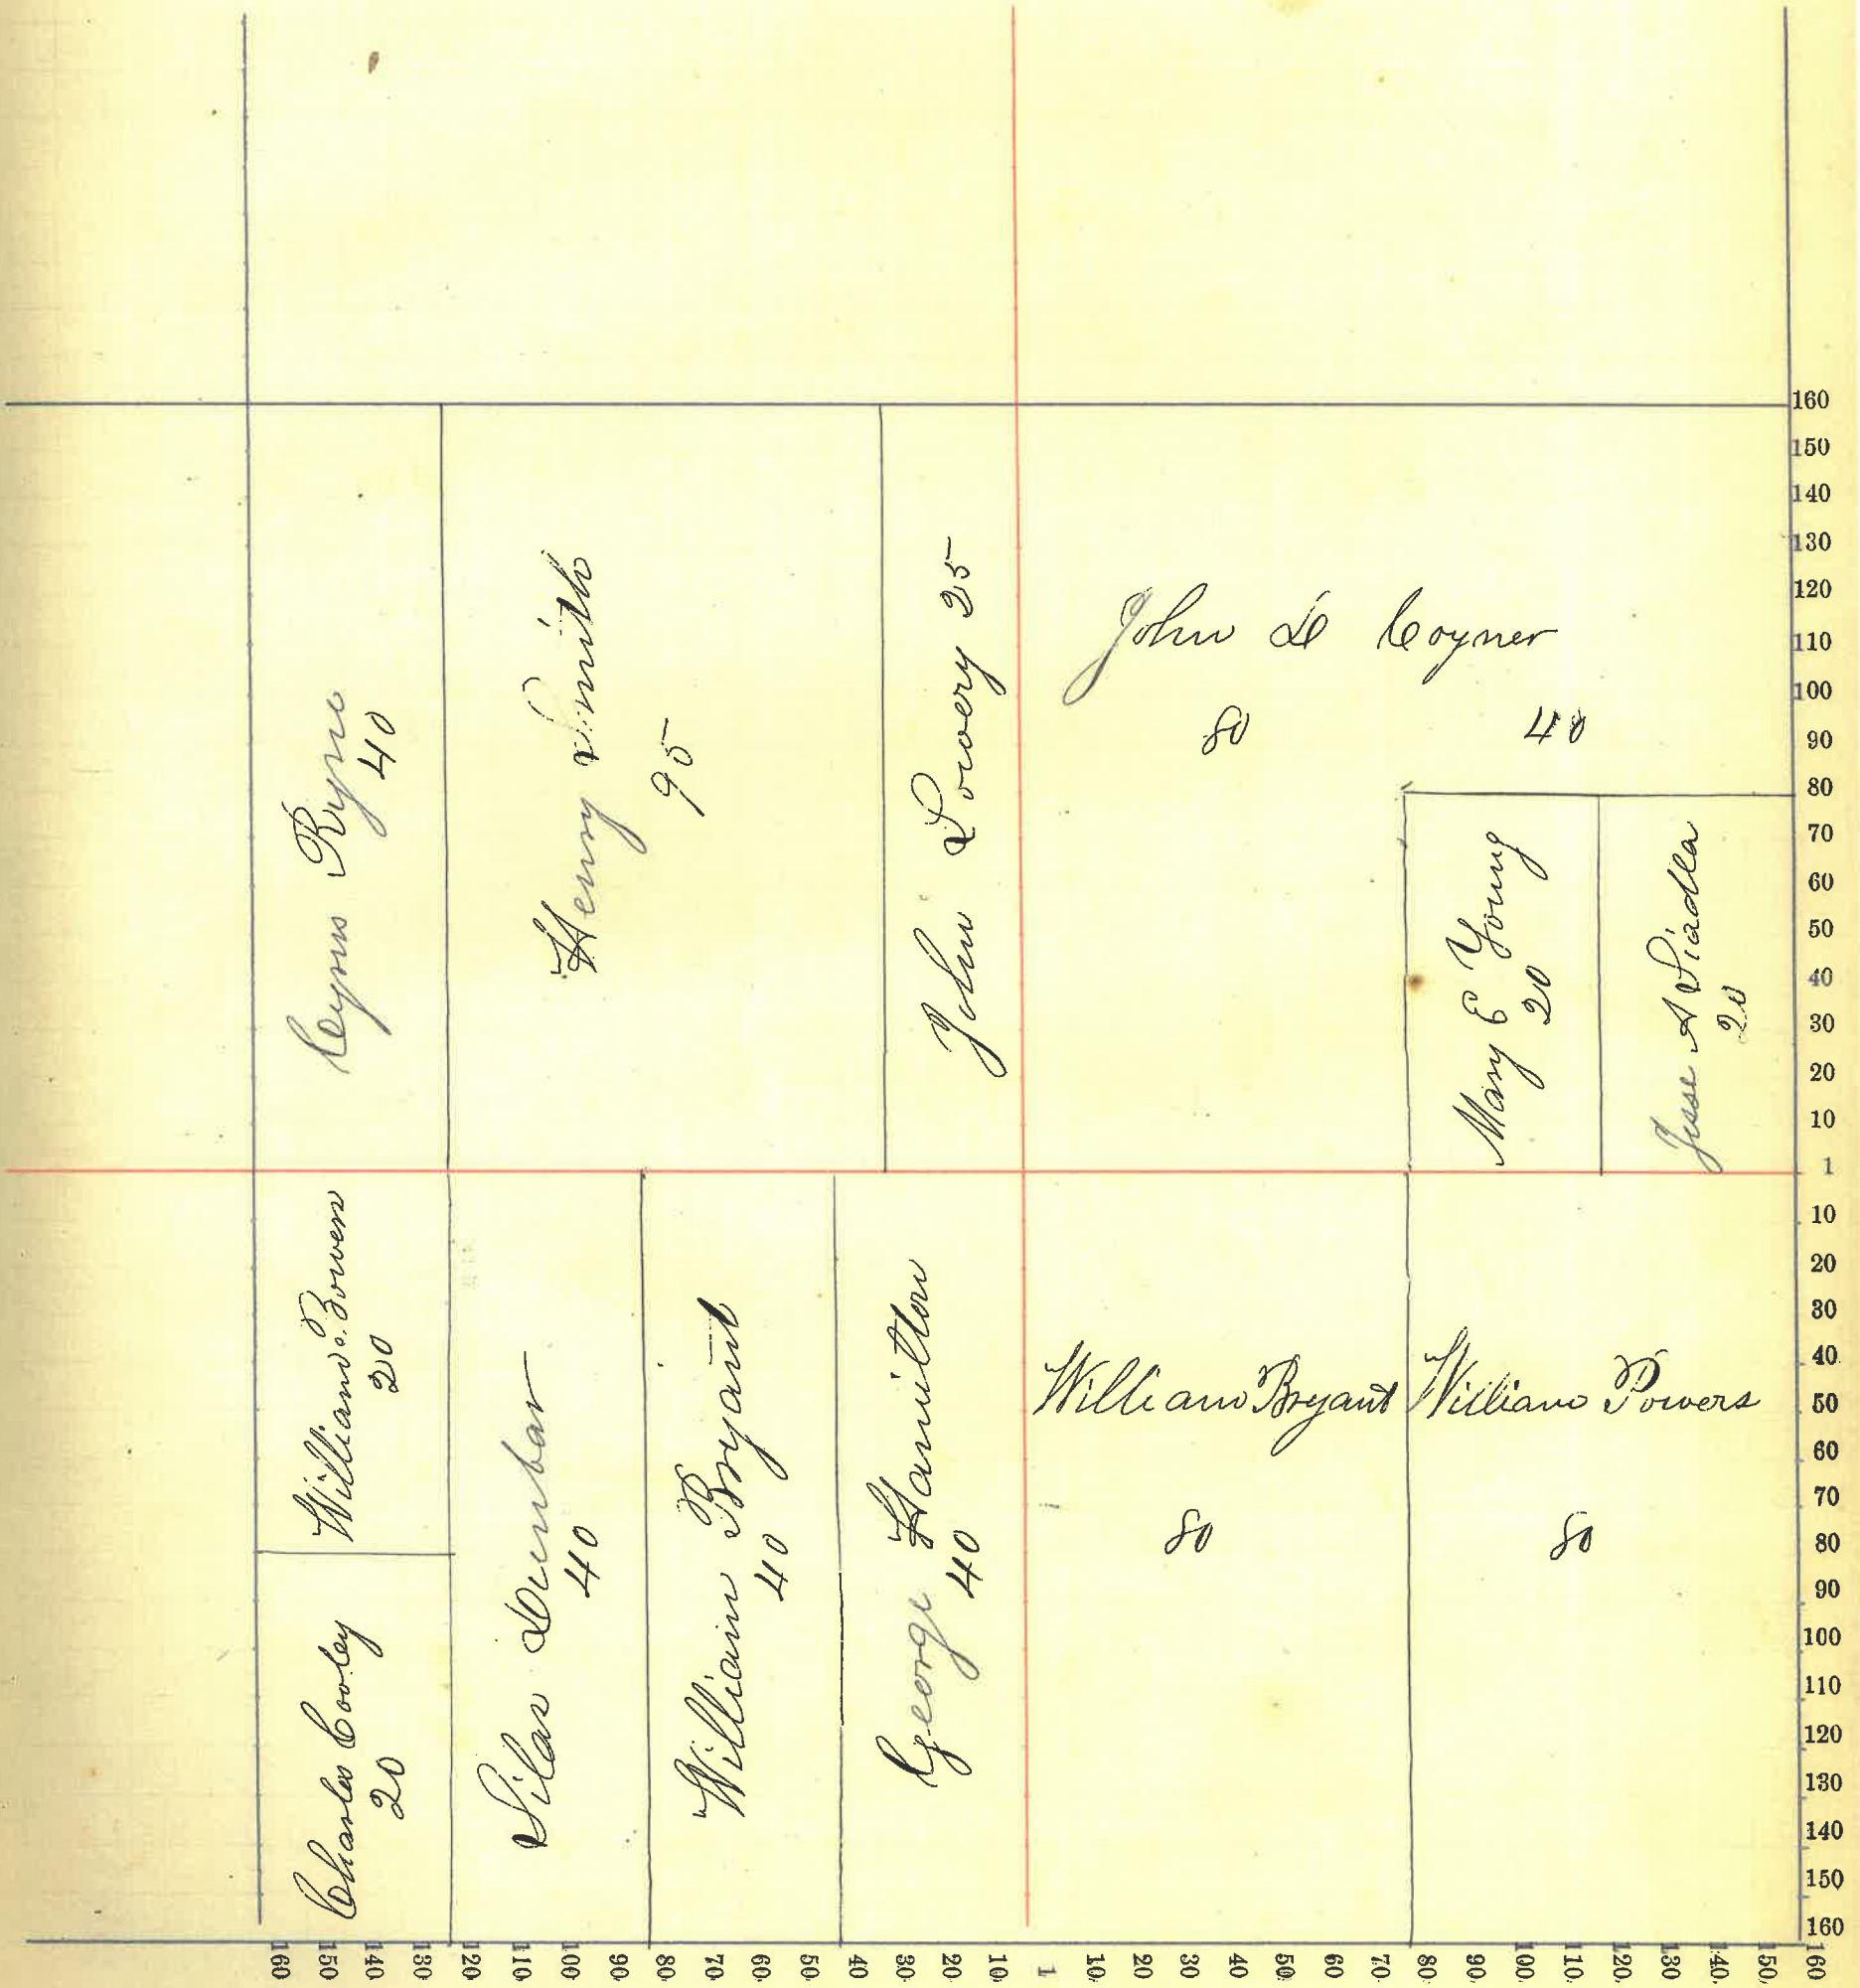 Cyrus Ryno
40
Henry Smith
95
John Lowery 25
John D Coyner
80 40
Mary E Young
20
Jesse A
20
William Bowen
20
Charles Cooley
20
Silas Dunbar
40
William Bryant
40
George Hamilton
40
William Bryant
80
William Powers
80
160
150
140
130
120
110
100
90
80
70
60
50
40
30
20
10
1
10
20
30
40
50
60
70
80
90
100
110
120
130
140
150
160
160 150 140 130 120 110 100 90 80 70 60 50 40 30 20 10 1 10 20 30 40 50 60 70 80 90 100 110 120 130 140 150 160